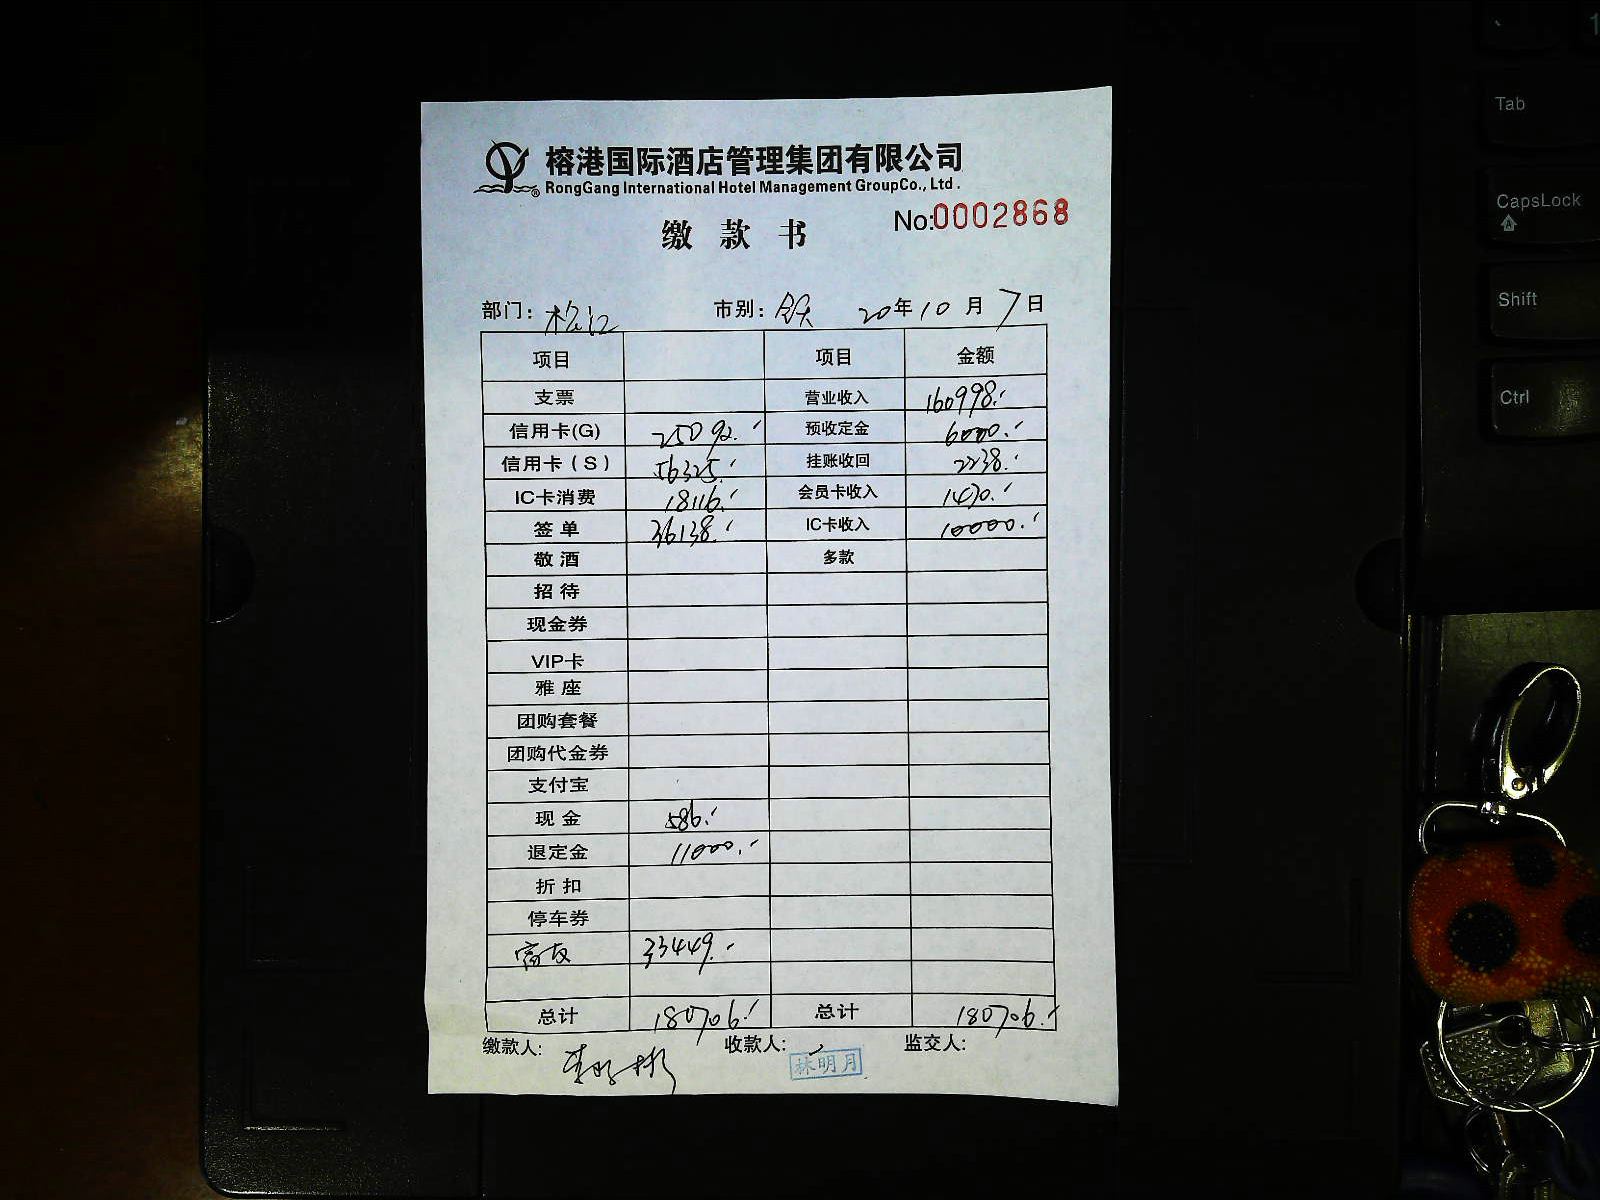 榕港国际酒店管理集团有限公司
RongGang International Hotel Management GroupCo., Ltd.
缴款书 No:0002868
部门: 市别: 20年10月7日
项目 项目 金额
支票 营业收入 160998.-
信用卡(G) 25092.- 预收定金 6000.-
信用卡(S) 56325.- 挂账收回 2238.-
IC卡消费 18116.- 会员卡收入 1470.-
签单 36138.- IC卡收入 10000.-
敬酒 多款
招待
现金券
VIP卡
雅座
团购套餐
团购代金券
支付宝
现金 586.-
退定金 11000.-
折扣
停车券
富友 33449.-
总计 180706.- 总计 180706.-
缴款人: 收款人: 林明月 监交人:
Tab
CapsLock
Shift
Ctrl